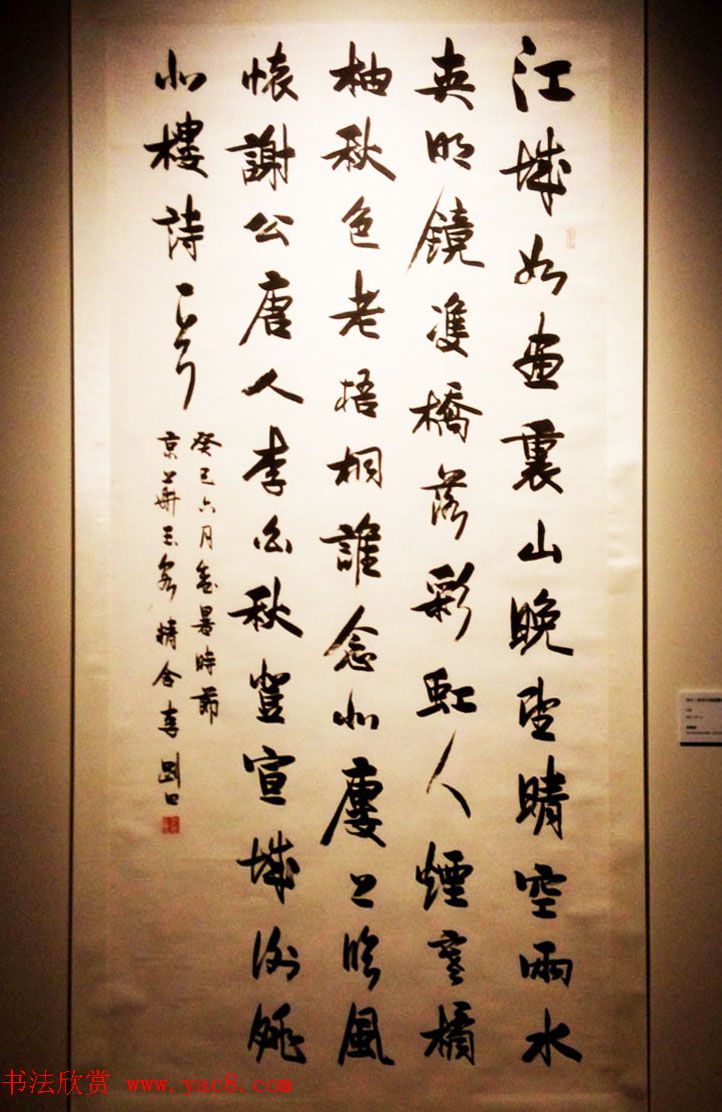 江城如畫裏山晚望晴空雨水
夾明鏡雙橋落彩虹人煙寒橘
柚秋色老梧桐誰念北廔上臨風
懷謝公唐人李白秋登宣城謝朓
北樓詩一首
癸巳六月暑時節
京華精舍李剛田
书法欣赏 www.yac8.com